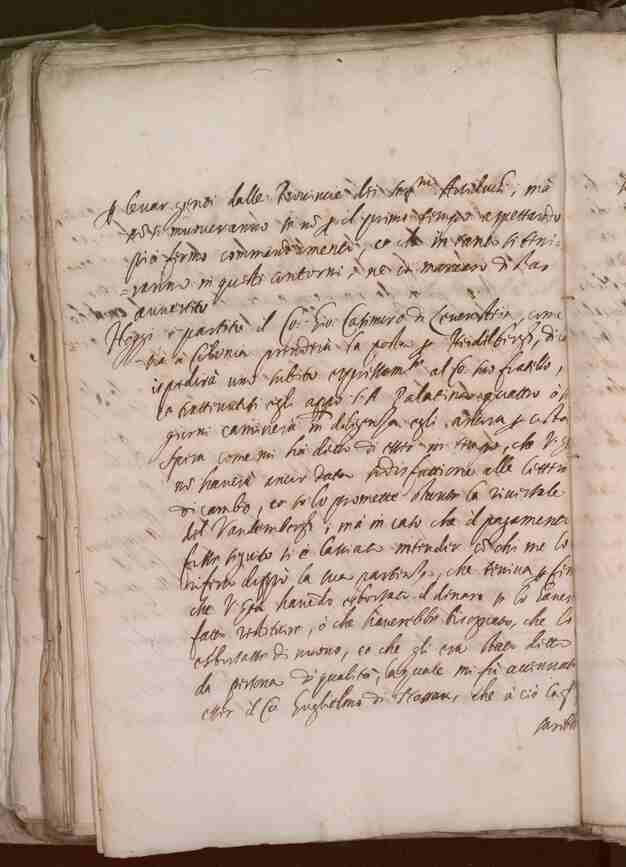 levar genti dalle Provincie dei Ser.mi Arciduchi, mà
non si muoveranno se nõ il primo tempo aspettando
più fermo commandamento, et che in tanto si teni:
:ranno in questi contorni, ne
avvertito
Hoggi è partito il Co: Gio: Casimiro di Levenstein, come
sia à Colonia prenderà la posta Heidelberg, di
ispedirà uno subito espressam.te al Co: suo fratello,
et trattenutosi egli app.o S.A. Palatina quattro ò
giorni caminerà in diligenza egli ancora
spera come mi hà detto di esser in tempo, che V.S.
nõ haverà ancor data sodisfattione alle lettere
di cambio, et se lo promette la
del Vandembergh; mà in caso che il pagamento
fosse seguito si è lasciato intender cõ chi me lo
riferì doppò la sua partenza, che teniva
che V.S. havendo esborsato il denaro se lo haver
fatto restituire, ò che haverebbe bisognato, che lo
esborsasse di nuovo, et che gli era stato detto
da persona di qualità, la quale mi fù accennato
esser il Co: Guglielmo di Nassau, che à ciò
sarebbe